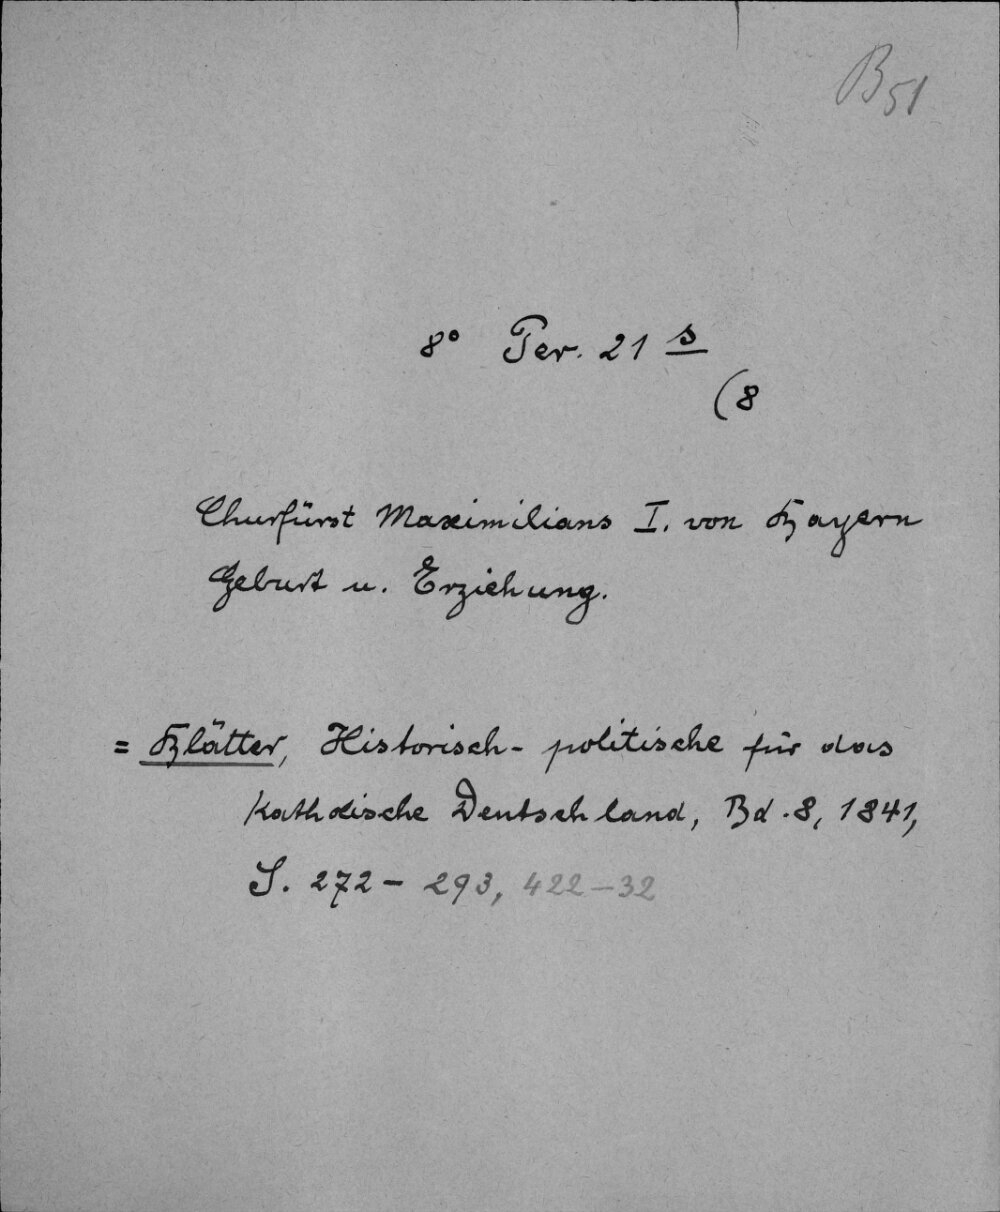 B51
8° Per. 21 s
(8
Churfürst Maximilians I. von Bayern
Geburt u. Erziehung.
= Blätter, Historisch-politische für das
katholische Deutschland, Bd. 8, 1841,
S. 272-293, 422-32